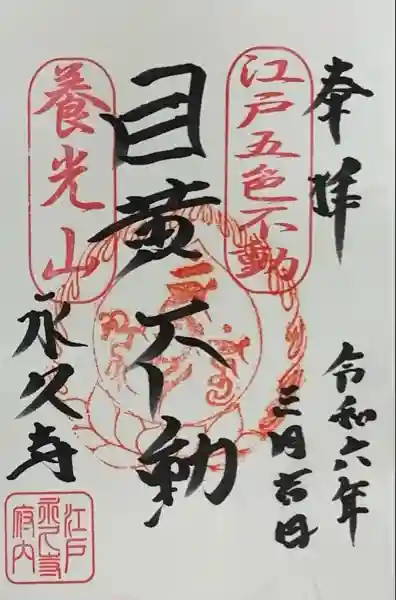 奉拝
令和六年
三月吉日
江戸五色不動
目黄不動
養光山
永久寺
江戸
永久寺
府内